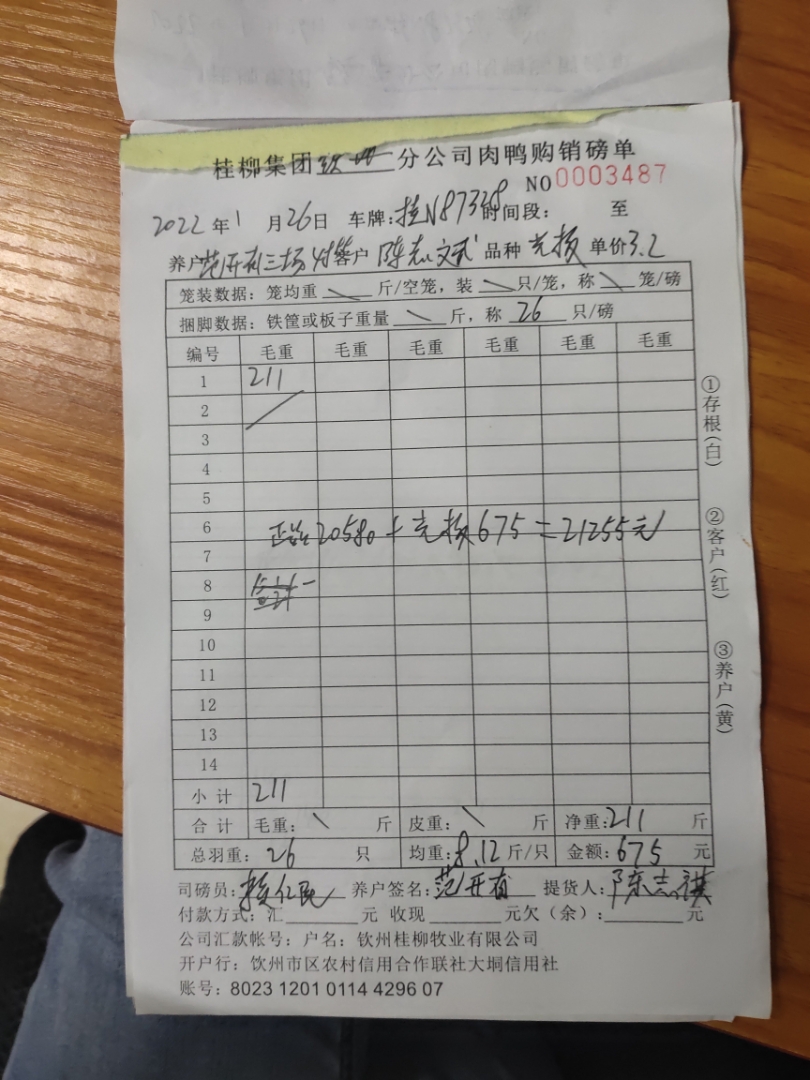 桂柳集团钦州分公司肉鸭购销磅单
NO 0003487
2022年1月26日 车牌:桂N87338 时间段: 至
养户 范开有三场 客户 陈志 品种 单价3.2
笼装数据：笼均重 \ 斤/空笼，装 \ 只/笼，称 \ 笼/磅
捆脚数据：铁筐或板子重量 \ 斤，称 26 只/磅
编号 毛重 毛重 毛重 毛重 毛重 毛重
1 211
2
3
4
5
6
20580 + 675 = 21255元
7
8
9
10
11
12
13
14
小计 211
合计 毛重： \ 斤 皮重： \ 斤 净重：211 斤
总羽重：26 只 均重：8.12 斤/只 金额：675 元
司磅员： 养户签名：范开有 提货人：陈志祺
付款方式：汇 元 收现 元欠（余）： 元
公司汇款帐号：户名：钦州桂柳牧业有限公司
开户行：饮州市区农村信用合作联社大垌信用社
账号：8023 1201 0114 4296 07
①存根(白)
②客户(红)
③养户(黄)